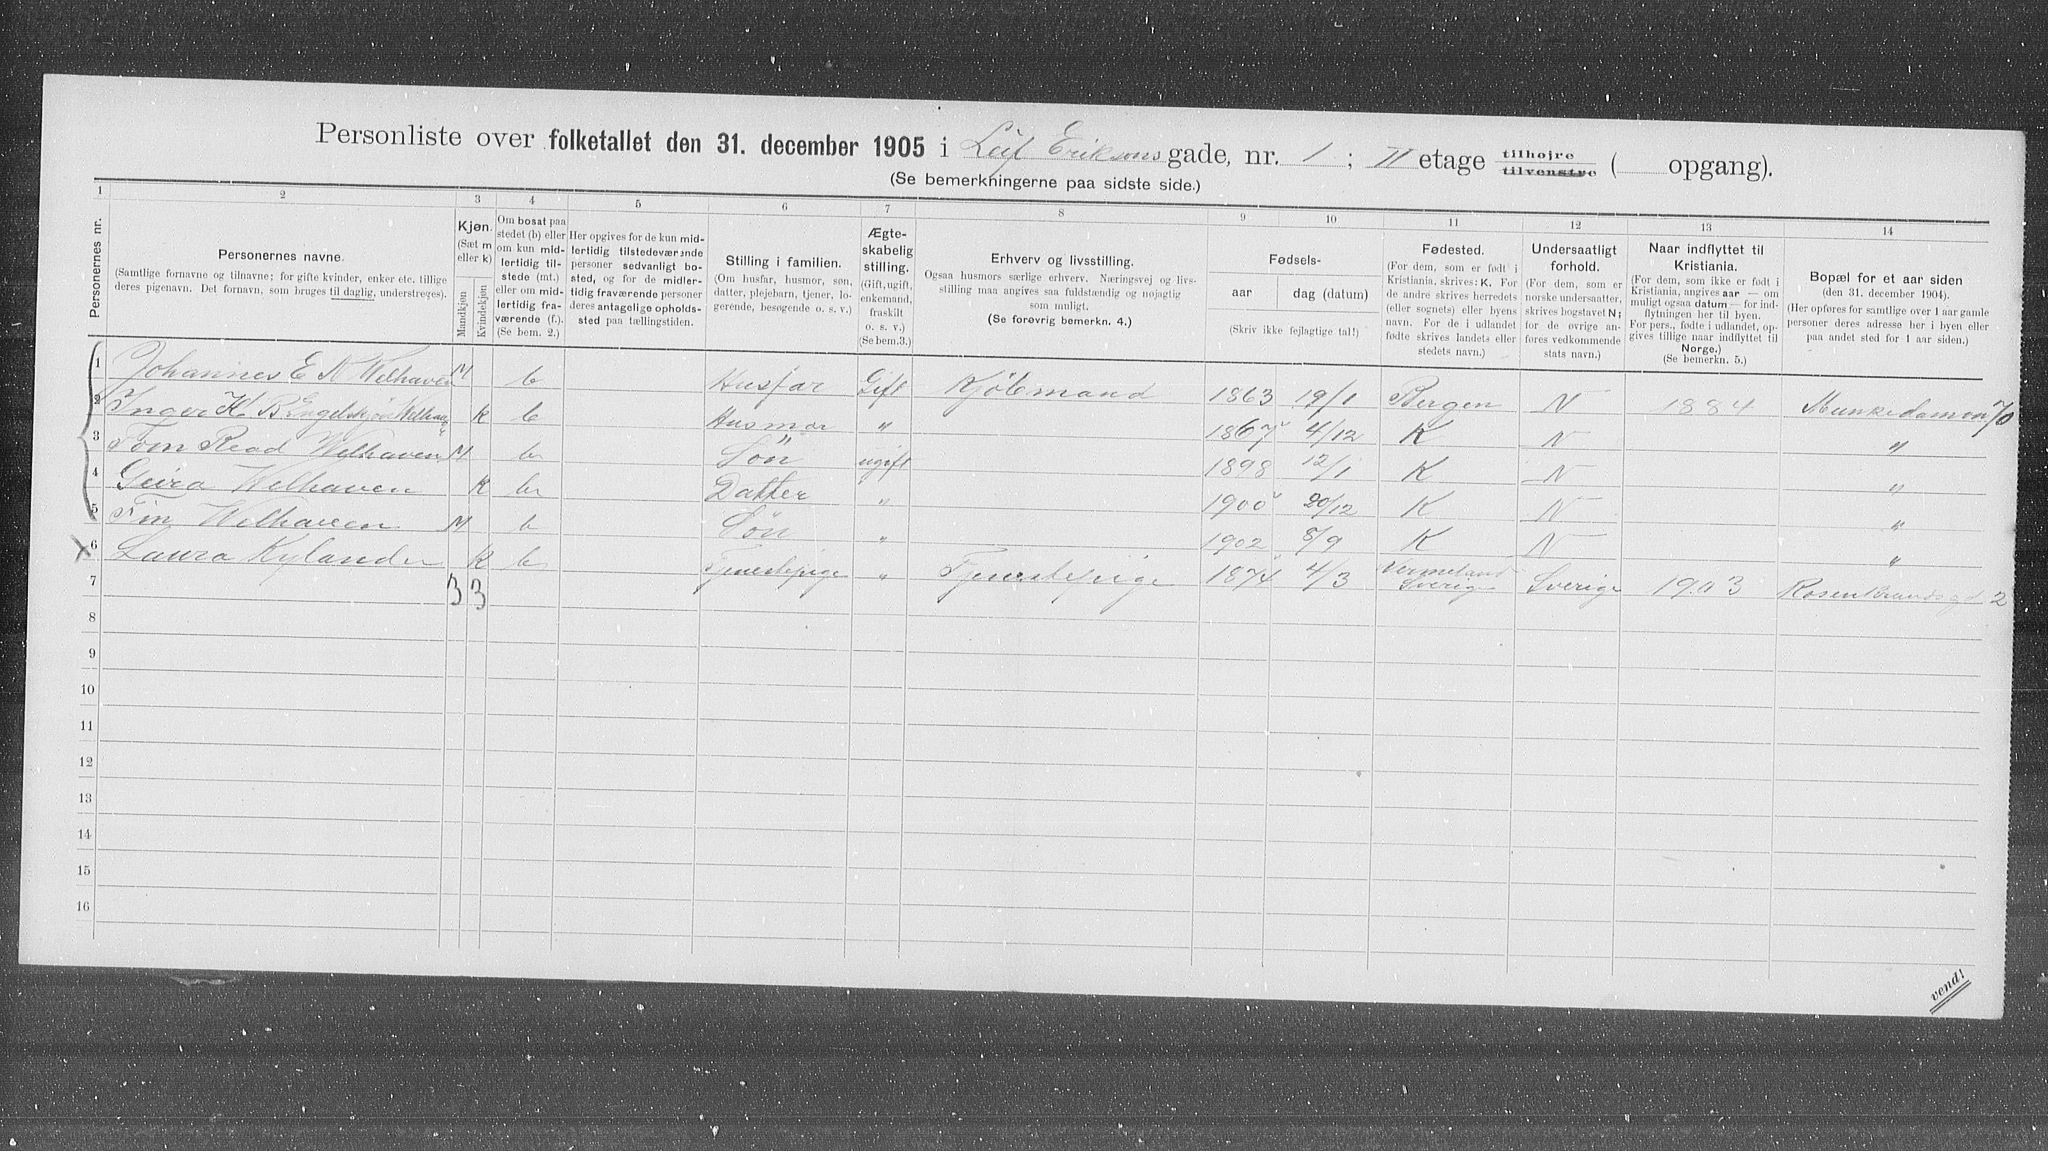 Personliste over folketallet den 31. december 1905 i Leif Eriksons gade, nr. 1 ; II etage tilhøjre tilvenstre ( opgang).
(Se bemerkningerne paa sidste side.)
1 2 3 4 5 6 7 8 9 10 11 12 13 14
Personernes nr.
Personernes navne.
(Samtlige fornavne og tilnavne; for gifte kvinder, enker etc. tillige deres pigenavn. Det fornavn, som bruges til daglig, understreges).
Kjøn.
(Sæt m eller k)
Mandkjøn
Kvindekjøn
Om bosat paa stedet (b) eller om kun midlertidig tilstede (mt.) eller om midlertidig fraværende (f.). (Se bem. 2.)
Her opgives for de kun midlertidig tilstedeværende personer sedvanligt bosted, og for de midlertidig fraværende personer deres antagelige opholdssted paa tællingstiden.
Stilling i familien.
(Om husfar, husmor, søn, datter, plejebarn, tjener, logerende, besøgende o. s. v.)
Ægteskabelig stilling.
(Gift, ugift, enkemand, fraskilt o. s. v.)
(Se bem.3.)
Erhverv og livsstilling.
Ogsaa husmors særlige erhverv. Næringsvej og livsstilling maa angives saa fuldstændig og nøjagtig som muligt.
(Se forøvrig bemerkn. 4.)
Fødsels-
aar
dag (datum)
(Skriv ikke fejlagtige tal!)
Fødested.
(For dem, som er født i Kristiania, skrives: K. For de andre skrives herredets (eller sognets) eller byens navn. For de i udlandet fødte skrives landets eller stedets navn.)
Undersaatligt forhold.
(For dem, som er norske undersaatter, skrives bogstavet N; for de øvrige anføres vedkommende stats navn.)
Naar indflyttet til Kristiania.
(For dem, som ikke er født i Kristiania, angives aar — om muligt ogsaa datum — for indflytningen her til byen. For pers., fødte i udlandet, opgives tillige naar indflyttet til Norge.)
(Se bemerkn. 5.)
Bopæl for et aar siden
(den 31. december 1904).
(Her opføres for samtlige over 1 aar gamle personer deres adresse her i byen eller paa andet sted for 1 aar siden.)
1 Johannes E K Welhaven M b Husfar Gift Kjöbmand 1863 19/1 Bergen N 1884 Munkedamsv 70
2 Inger K B Engelskjön Welhaven k b Husmor " 1867 4/12 K N "
3 Tom Read Welhaven M b Sön ugift 1898 12/1 K N "
4 Geira Welhaven K b Datter " 1900 20/12 K N "
5 Fin Welhaven M b Sön " 1902 8/9 K N "
6 Laura Kylander K b Tjenestepige " Tjenestepige 1874 4/3 Vermeland Sverige Sverige 1903 Rosenkrandsgd 2
7 3 3
8
9
10
11
12
13
14
15
16
vend!